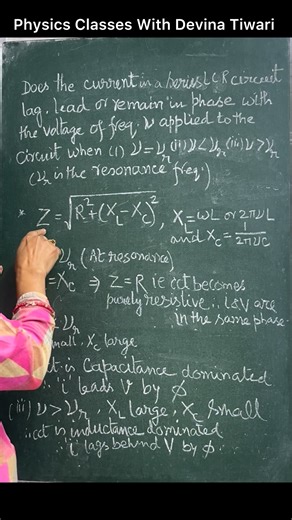 Physics Classes With Devina Tiwari
Does the current in a series LCR circuit
lag, lead or remain in phase with
the voltage of freq. ν applied to the
circuit when (i) ν=νr (ii) ν<νr (iii) ν>νr
(νr is the resonance freq.)
* Z = √R²+(XL−XC)² , XL= ωL or 2πνL
and XC = 1/2πνC
νr (At resonance)
= XC ⇒ Z = R ie cct becomes
purely resistive ∴ I & V are
in the same phase
νr
small, XC large
cct is Capacitance dominated
∴ 'i' leads V by φ
(iii) ν > νr, XL large, XC small
∴ cct is inductance dominated
∴ 'i' lags behind V by φ